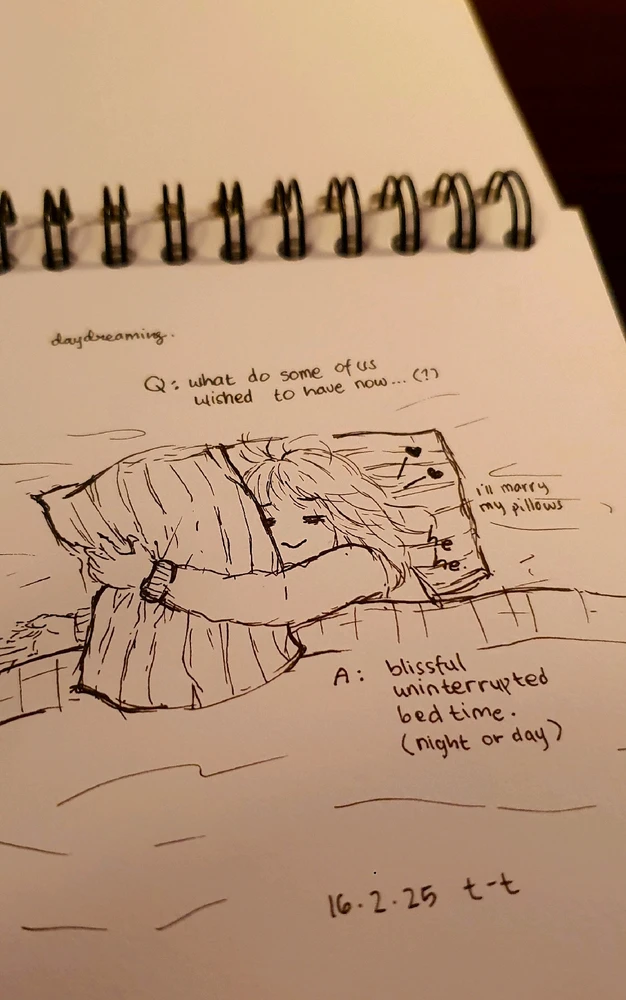 daydreaming..
Q: what do some of us
wished to have now... (?)
i'll marry
my pillows
he
he.
A: blissful
uninterrupted
bed time.
(night or day)
16.2.25 t-t